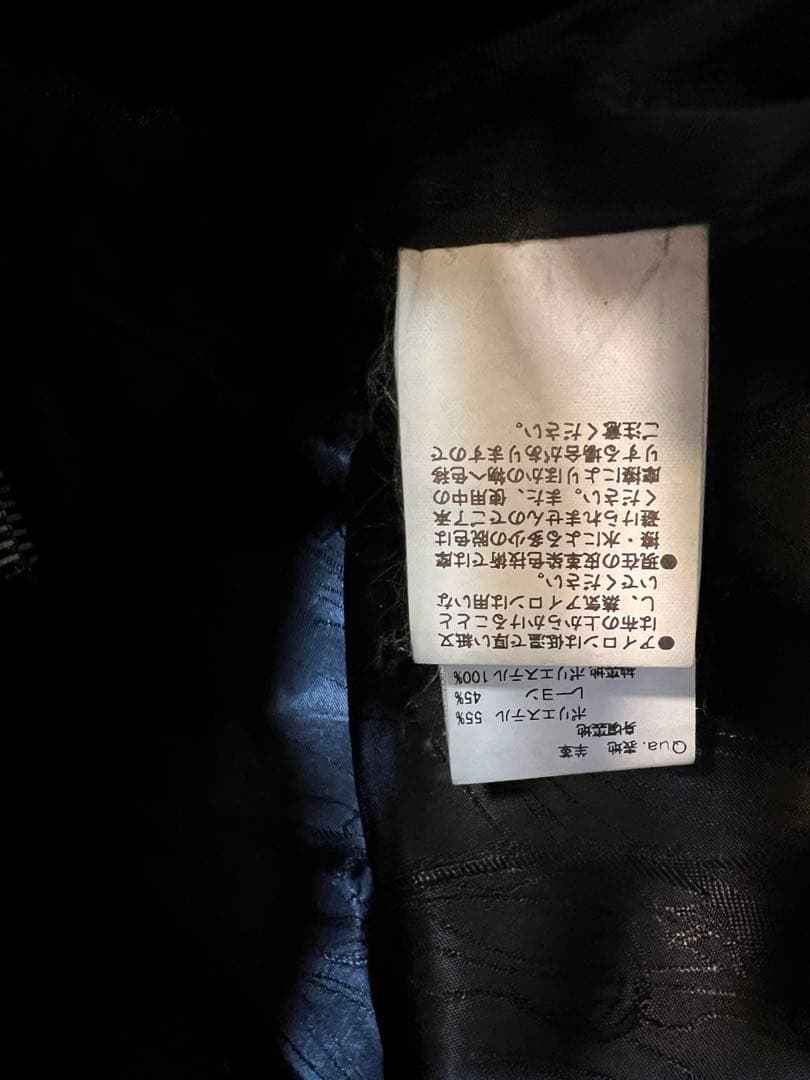 Qua. 表地 羊革
身頃裏地
ポリエステル 55%
レーヨン 45%
袖裏地 ポリエステル 100%
●アイロンは低温で厚い紙又
は布の上からかけることと
し、蒸気アイロンは用いな
いでください。
●現在の皮革染色技術では摩
擦・水による多少の脱色は
避けられませんのでご了承
ください。また、使用中の
摩擦によりほかの物へ色移
りする場合がありますので
ご注意ください。